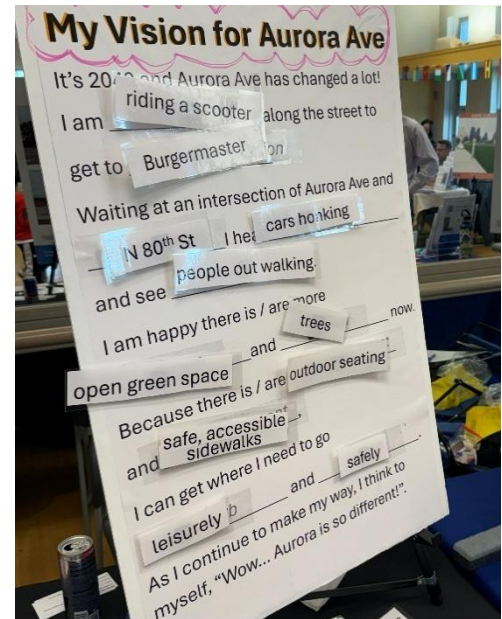 My Vision for Aurora Ave
It's 204 and Aurora Ave has changed a lot!
I am riding a scooter along the street to
get to Burgermaster on
Waiting at an intersection of Aurora Ave and
N 80th St I hea cars honking
and see people out walking.
I am happy there is / are more
open green space and trees now.
Because there is / are outdoor seating
and safe, accessible sidewalks,
I can get where I need to go
leisurely b and safely.
As I continue to make my way, I think to
myself, "Wow... Aurora is so different!".